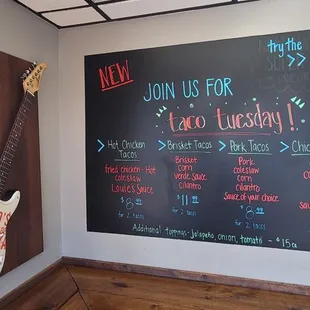 try the
NEW
JOIN US FOR
taco tuesday!
> Hot Chicken Tacos
fried chicken - Hot
coleslaw
Louie's Sauce
$8
for 2 tacos
> Brisket Tacos
Brisket
corn
verde Sauce
cilantro
$11
for 2 tacos
> Pork Tacos
Pork
coleslaw
corn
cilantro
Sauce of your choice
$8
for 2 tacos
> Chic
co
Sau
Additional toppings - jalapeño, onion, tomato - $.15